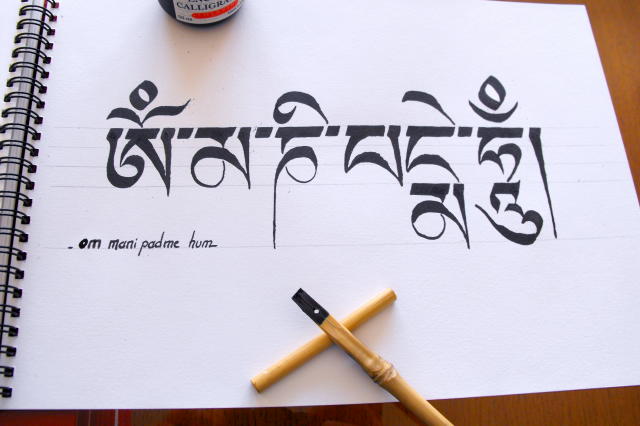 CALLIGRA
ཨོཾ་མ་ཎི་པདྨེ་ཧཱུྃ།
- om mani padme hum